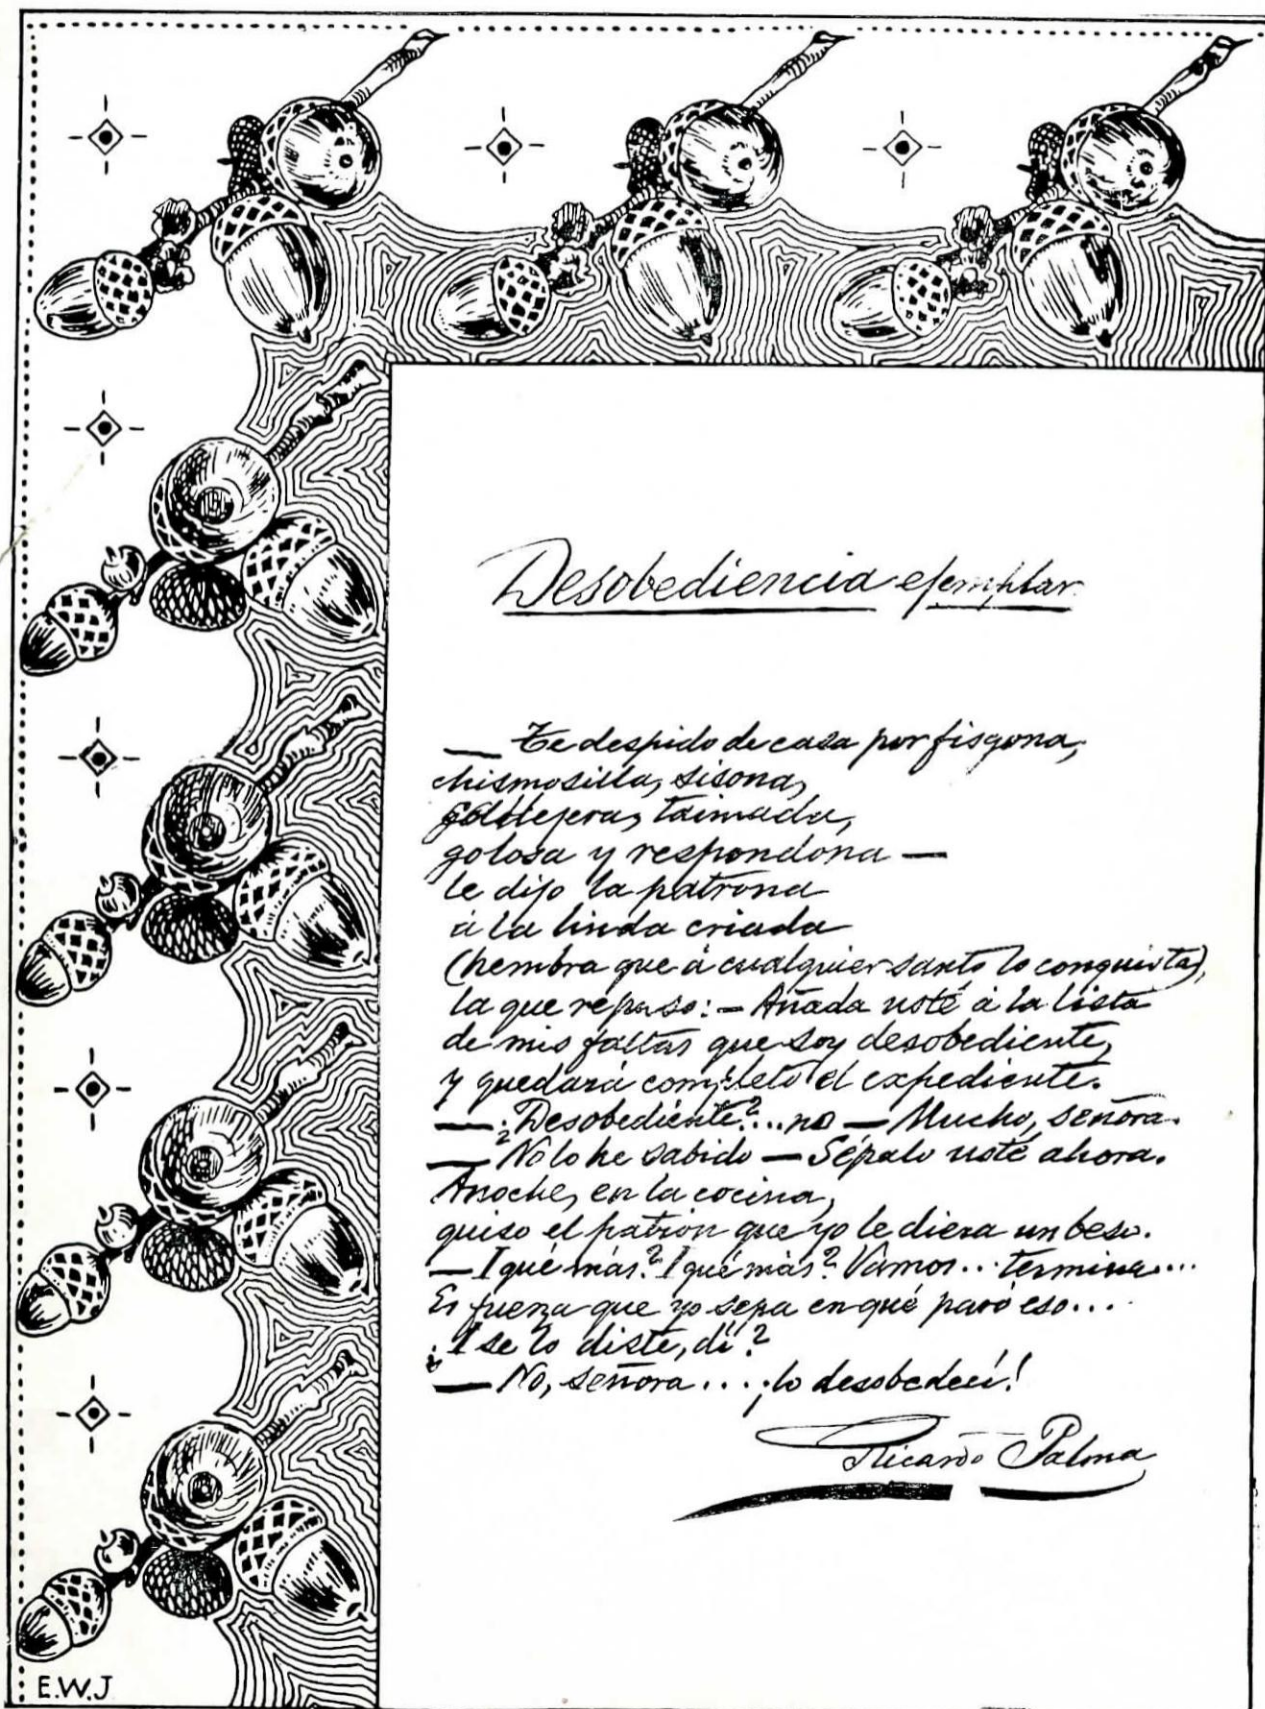 Desobediencia ejemplar
— Te despido de casa por fisgona,
chismosilla, sisona,
gallejera, taimada,
golosa y respondona —
le dijo la patrona
á la linda criada
(hembra que á cualquier santo lo conquista),
la que repuso: — Añada usté á la lista
de mis faltas que soy desobediente,
y quedará completo el expediente.
— ¿Desobediente?... no — Mucho, señora.
— No lo he sabido — Sépalo usté ahora.
Anoche, en la cocina,
quiso el patrón que yo le diera un beso.
— I qué más? I qué más? Vamos.. termina....
Es fuerza que yo sepa en qué paró eso....
¿I se lo diste, di?
— No, señora.... ¡lo desobedecí!
Ricardo Palma
E.W.J